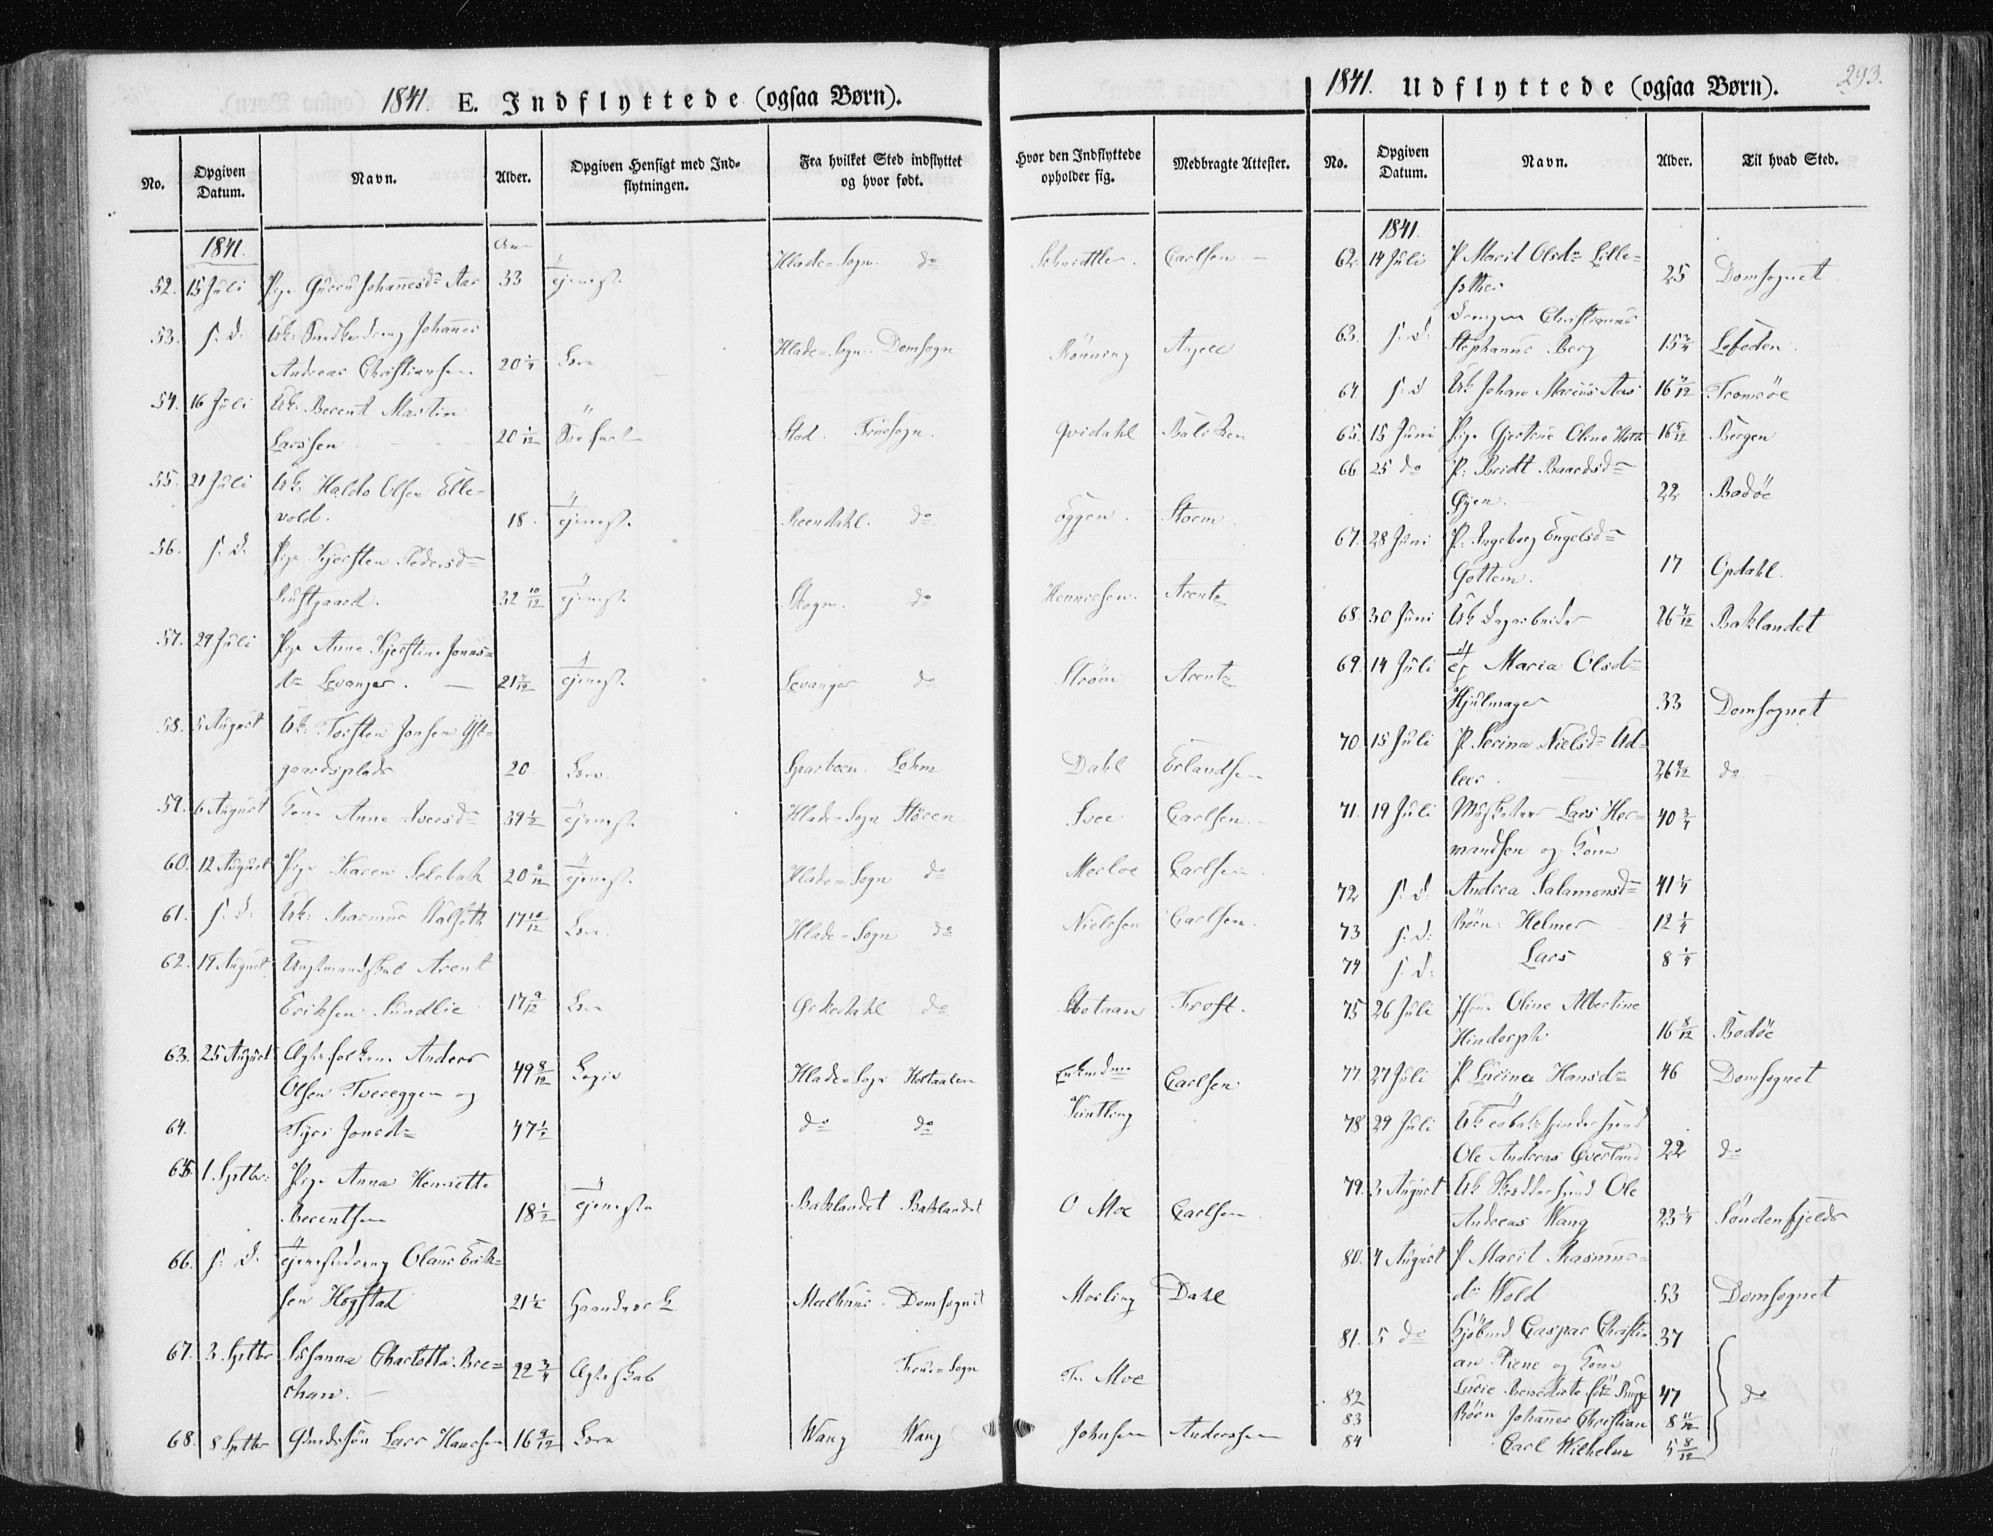 1841. E. Indflyttede (ogsaa Børn).
No. Opgiven Datum. Navn. Alder. Opgiven Hensigt med Indflytningen. Fra hvilket Sted indflyttet og hvor født. Hvor den Indflyttede opholder sig. Medbragte Attester.
1841.
52. 15 Juli Pige Guru Johannesd= Aas 33 Tjeneste Hlade=Sogn do Schmidtler. Carlsen
53. s. d. Uk: Johannes
Andreas Christiansen 20 1/4 Lære Hlade=Sogn Domsogn Rönning Angell
54. 16 Juli Uk: Berent Martin
Larssen 20 1/12 Stod. Fruesogn. Qvidahl
55. 21 Juli Uk: Haldo Olsen Elle-
vold. 18. Tjeneste do Eggen. Storm
56. s. d. Pige Kjersten Pedersd=
32 10/12 Tjeneste Skogn. do Hennessen. Arentz
57. 29 Juli Pige Anne Kjerstine Jonas-
d= Levanger. 21 Tjeneste Levanger do Ström Arentz
58. 5 August Uk: Torsten Jonsen
gaardsplads 20. Lære Sparboen. Dahl Erlandsen
59. 6 August Kone Anne Iversd= 39 1/2 Tjeneste Hlade=Sogn Stören Svee Carlsen
60. 12 August Pige Karen Selebak 20 Tjeneste Hlade=Sogn do Carlsen
61. s. d. Uk: Rasmus 17 10/12 Lære Hlade=Sogn do Nielssen Carlsen.
62. 19 August Ungkarl Arent
Eriksen Sundlie 17 9/12 Lære Orkedahl do Trost.
63. 25 August Ægtefolkene Anders
Olsen Tvereggen og 49 8/12 Logie Hlade=Sogn Holtaalen Carlsen
64. Jonsd= 47 1/2 do do
65 1. Septbr: Pige Anna Henriette
Berentsen 18 1/2 Tjeneste Baklandet Baklandet O Moe Carlsen
66. s. d. Tjenestedreng Olaus Erik-
sen Hogstad 21 1/2 Haandverk Meelhuus. Domsognet Morling Dahl
67. 3. Septbr Susanna Charlotta Bre-
chan. 22 3/4 Ægteskab Frue=Sogn Fr. Moe
68. 8 Septbr Lars Hansen 16 9/12 Lære Wang Wang Johnsen Anderssen
1841. Udflyttede (ogsaa Børn). 293.
No. Opgiven Datum. Navn. Alder. Til hvad Sted.
1841
62. 14 Juli P Marit Olsd= Lille-
25 Domsognet
63. s. d: drengen Christianus
Stephanus Berg 15 3/4 Lofoden
64. s. d Uk Johan Marius Aas 16 Tromsöe
65. 15 Juni Pige Gjertrue Oline 16 Bergen
66 25 do P: Beridt Baardsd=
Øyen. 22 Bodöe
67. 28 Juni P. Ingeborg Engelsd=
Gottem. 17 Opdahl.
68. 30 Juni Uk Dagarbeider 26 Baklandet
69. 14 Juli Maria Olsd=
Hjulmager 33 Domsognet
70. 15 Juli P Serina Nielsd= Ud-
leer. 26 do
71. 19 Juli Musketeer Lars Her-
mandsen og Kone 40 3/4
72 s. d. Andrea Salamonsd= 41 1/4
73 s. d: Børn: Helmer 12 1/4
74 s. d: Lars 8 1/4
75 26 Juli Oline Albertine
Hindorph 16 8/12 Bodöe
77. 27 Juli P Hansd= 46 Domsognet
78 29 Juli Uk
Ole Andreas Qverland 22 do
79. 3 August Uk Ole
Andreas Wang 23 1/4 Søndenfjelds
80. 4 August P Marit Rasmus-
d= Wold 53 Domsognet
81. 5 do Kjöbmd Caspar Christi-
an Piene og Kone 37
82 Benedicte 47 do
83 Børn Johannes Christian 8 11/12
84 Carl Wilhelm 5 8/12